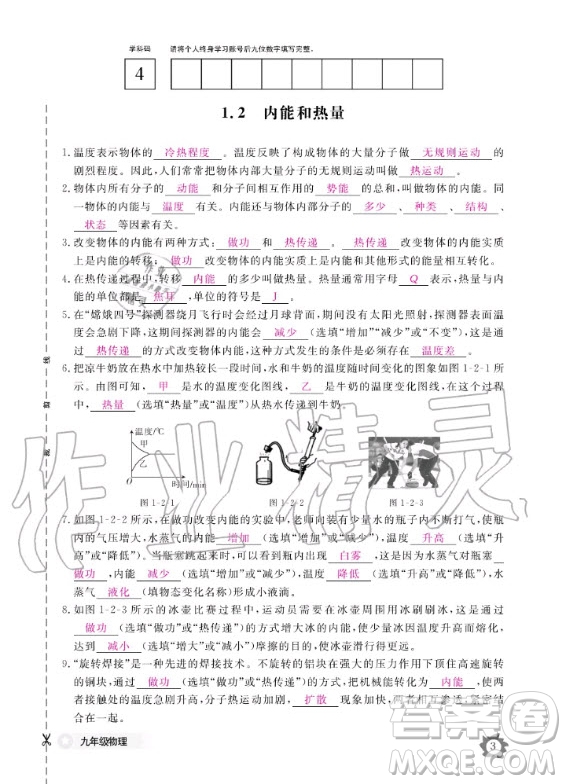 学科码 请将个人终身学习账号后九位数字填写完整。
4
1.2 内能和热量
1.温度表示物体的 冷热程度 。温度反映了构成物体的大量分子做 无规则运动 的
剧烈程度。因此,人们常常把物体内部大量分子的无规则运动叫做 热运动 。
2.物体内所有分子的 动能 和分子间相互作用的 势能 的总和,叫做物体的内能。同
一物体的内能与 温度 有关。内能还与物体内部分子的 多少 、 种类 、 结构 、
状态 等因素有关。
3.改变物体的内能有两种方式: 做功 和 热传递 。 热传递 改变物体的内能实质
上是内能的转移; 做功 改变物体的内能实质上是内能和其他形式的能量相互转化。
4.在热传递过程中,转移 内能 的多少叫做热量。热量通常用字母 Q 表示,热量与内
能的单位都是 焦耳 ,单位的符号是 J 。
5.在“嫦娥四号”探测器绕月飞行时会经过月球背面,因为没有太阳光照射,探测器表面温
度会急剧下降,这期间探测器的内能会 减少 (选填“增加”“减少”或“不变”),这是通
过 热传递 的方式改变物体内能,这种方式发生的条件是必须存在 温度差 。
6.把凉牛奶放在热水中加热较长一段时间,水和牛奶的温度变化图线如图1-2-1所
示,可知, 甲 是水的温度变化图线, 乙 是牛奶的温度变化图线,在这个过程
中, 热量 (选填“热量”或“温度”)从热水传递到牛奶。
温度/℃
甲
乙
时间/min
图 1-2-1 图 1-2-2 图 1-2-3
7.如图1-2-2所示,在做功改变内能的实验中,老师向装有少量水的瓶子内不断打气,使
瓶内的气压增大,水蒸气的内能 增加 (选填“增加”或“减少”),温度 升高 (选填“升
高”或“降低”)。当瓶塞跳起来时,可以看到瓶内出现 白雾 ,这是因为水蒸气对瓶塞
做功 ,内能 减少 (选填“增加”或“减少”),温度 降低 (选填“升高”或“降低”),水
蒸气 液化 (填物态变化名称)形成小液滴。
8.如图1-2-3所示的冰壶比赛过程中,运动员需要在冰壶周围用冰刷刷冰,这是通过
做功 (选填“做功”或“热传递”)的方式增大冰的内能,使少量冰因温度升高而熔化,
从而达到 减小 (选填“增大”或“减小”)摩擦的目的。
9.“旋转焊接”是一种先进的焊接技术。不旋转的铝块在强大的压力作用下顶住高速旋转
的铜块,通过 做功 (选填“做功”或“热传递”)的方式,把机械能转化为 内能 ,使两
者接触处的温度急剧升高,分子热运动加剧, 扩散 现象加快,两者相互渗透,紧密结
合在一起。
线
作业精灵
答案圈
MXQE.COM
九年级物理
3